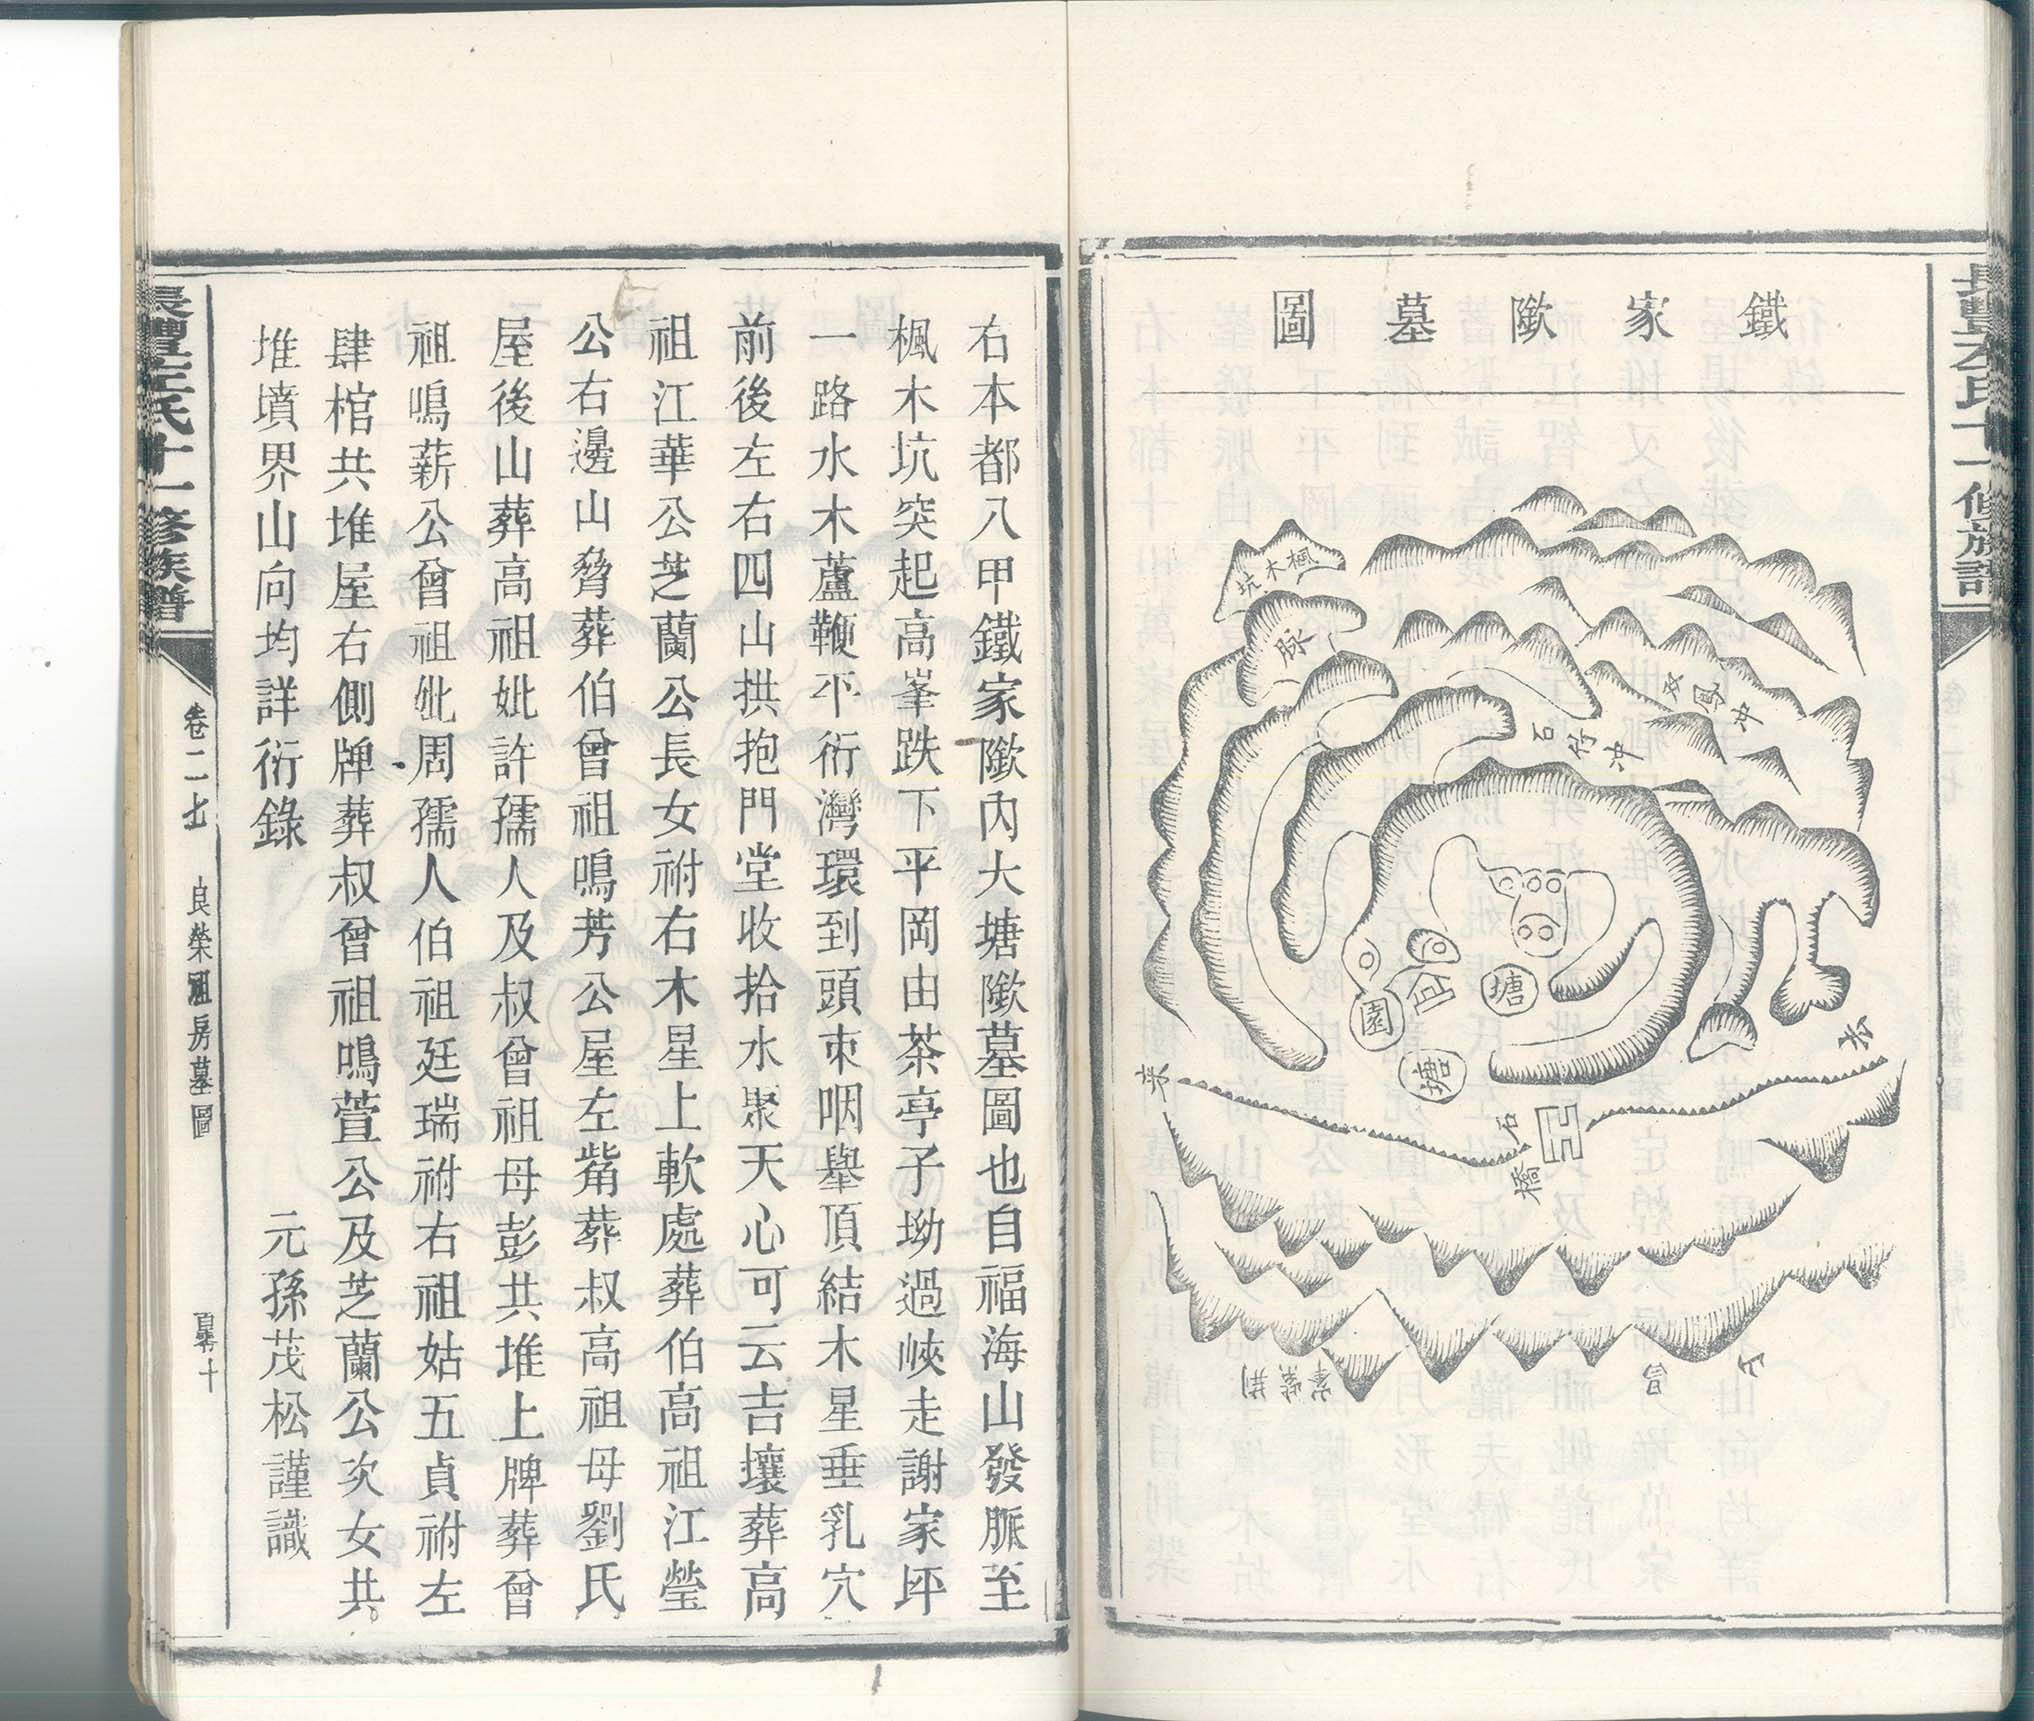 鐵家𨻶墓圖
楓木坑
脉
双鳳冲
石竹冲
塘
園
塘
来
去
石橋
荆紫峯
右本都八甲鐵家𨻶內大塘𨻶墓圖也自福海山發脈至
楓木坑突起高峯跌下平岡由茶亭子坳過峽走謝家坪
一路水木蘆鞭平衍灣環到頭束咽舉頂結木星垂乳穴
前後左右四山拱抱門堂收拾水聚天心可云吉壤葬高
祖江華公芝蘭公長女祔右木星上軟處葬伯高祖江瑩
公右邊山脅葬伯曾祖鳴芳公屋左觜葬叔高祖母劉氏
屋後山葬高祖妣許孺人及叔曾祖母彭共堆上牌葬曾
祖鳴薪公曾祖妣周孺人伯祖廷瑞祔右祖姑五貞祔左
肆棺共堆屋右側牌葬叔曾祖鳴萱公及芝蘭公次女共
堆墳界山向均詳衍錄
元孫茂松謹識
氏十一修族譜
卷二七
良榮祖房墓圖